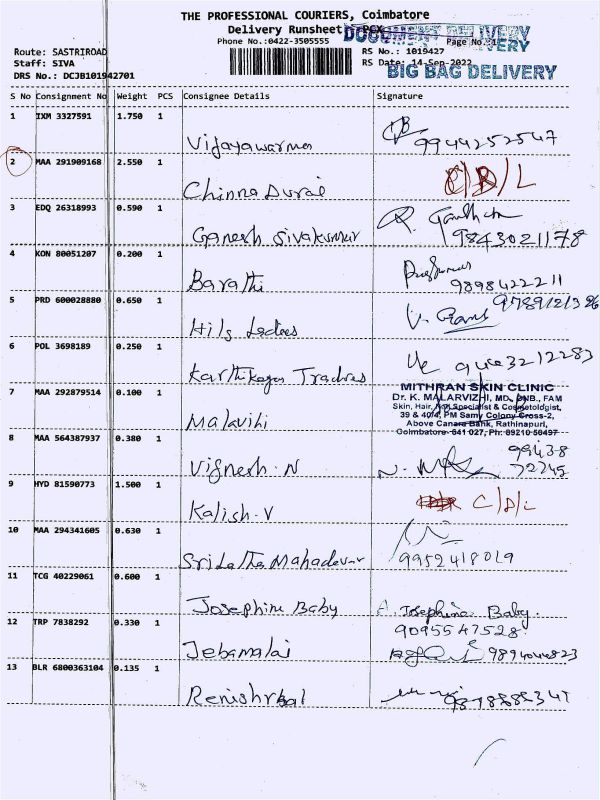 THE PROFESSIONAL COURIERS, Coimbatore
Delivery Runsheet
DOCUMENT DELIVERY
Phone No.:0422-3505555
Page No.:1
Route: SASTRIROAD
RS No.: 1019427
Staff: SIVA
RS Date: 14-Sep-2022
DRS No.: DCJB101942701
BIG BAG DELIVERY
S No Consignment No Weight PCS Consignee Details Signature
1 IXM 3327591 1.750 1
Vijayawarma 9944252547
2 MAA 291909168 2.550 1
Chinna Durai C/D/L
3 EDQ 26318993 0.590 1
Ganesh Sivakumar 9843021178
4 KON 80051207 0.200 1
Barathi 9898422211
5 PRD 600028880 0.650 1
Hils Ladies
6 POL 3698189 0.250 1
Karthikeyan Tradres
MITHRAN SKIN CLINIC
7 MAA 292879514 0.100 1
Dr. K. MALARVIZHI, MD., DNB., FAM
Skin, Hair, Specialist & Cosmetologist,
39 & 40/4, PM Samy Colony Cross-2,
Malavihi Above Canara Bank, Rathinapuri,
Coimbatore-641 027, Ph: 89210 50497
8 MAA 564387937 0.380 1
Vignesh.N 99438
72745
9 HYD 81590773 1.500 1
Kalish.V C/D/L
10 MAA 294341605 0.630 1
SriLatha Mahadevar 9952418019
11 TCG 40229061 0.600 1
Josephine Baby A. Josephine Baby.
12 TRP 7838292 0.330 1
9095547528
Jebamalai
13 BLR 6800363104 0.135 1
Renishrbal